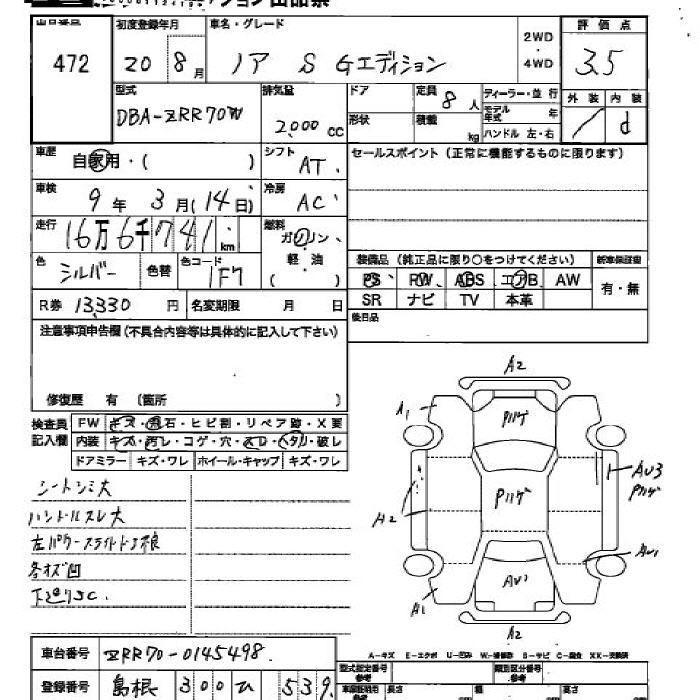 出品票
472
初度登録年月
20 8月
車名・グレード
ノア S Gエディション
2WD
・
4WD
評価点
3.5
型式
DBA-ZRR70W
排気量
2,000 cc
ドア
定員 8 人
形状
積載 kg
ディーラー・並行
モデル年式 年
ハンドル 左・右
外装 内装
/ d
車歴
自家用・( )
シフト
AT
セールスポイント (正常に機能するものに限ります)
車検
9年 3月(14日)
冷房
AC
走行
16万6千741km
燃料
ガソリン・
軽・油
( )
色
シルバー
色替
色コード
1F7
装備品 (純正品に限り○をつけてください)
新車保証書
PS PW ABS エアB AW
SR ナビ TV 本革
有・無
R券 13,330 円
名変期限 月 日
後日品
注意事項申告欄 (不具合内容等は具体的に記入して下さい)
修復歴 有 (箇所 )
検査員
記入欄
FW キズ・飛石・ヒビ割・リペア跡・X要
内装 キズ・汚レ・コゲ・穴・スレ・ヘタリ・破レ
ドアミラー キズ・ワレ ホイール・キャップ キズ・ワレ
シートシミ大
ハンドルスレ大
各オズ凹
A2
A1
Pハゲ
AU3
Pハゲ
A2
Pハゲ
AU1
AU1
A1
A2
車台番号 ZRR70-0145498
A-キズ E-エクボ U-凹み W-補修跡 B-サビ C-腐食 XX-交換済
登録番号 島根 300 ひ 539
型式指定番号
類別区分番号
長さ 幅 高さ